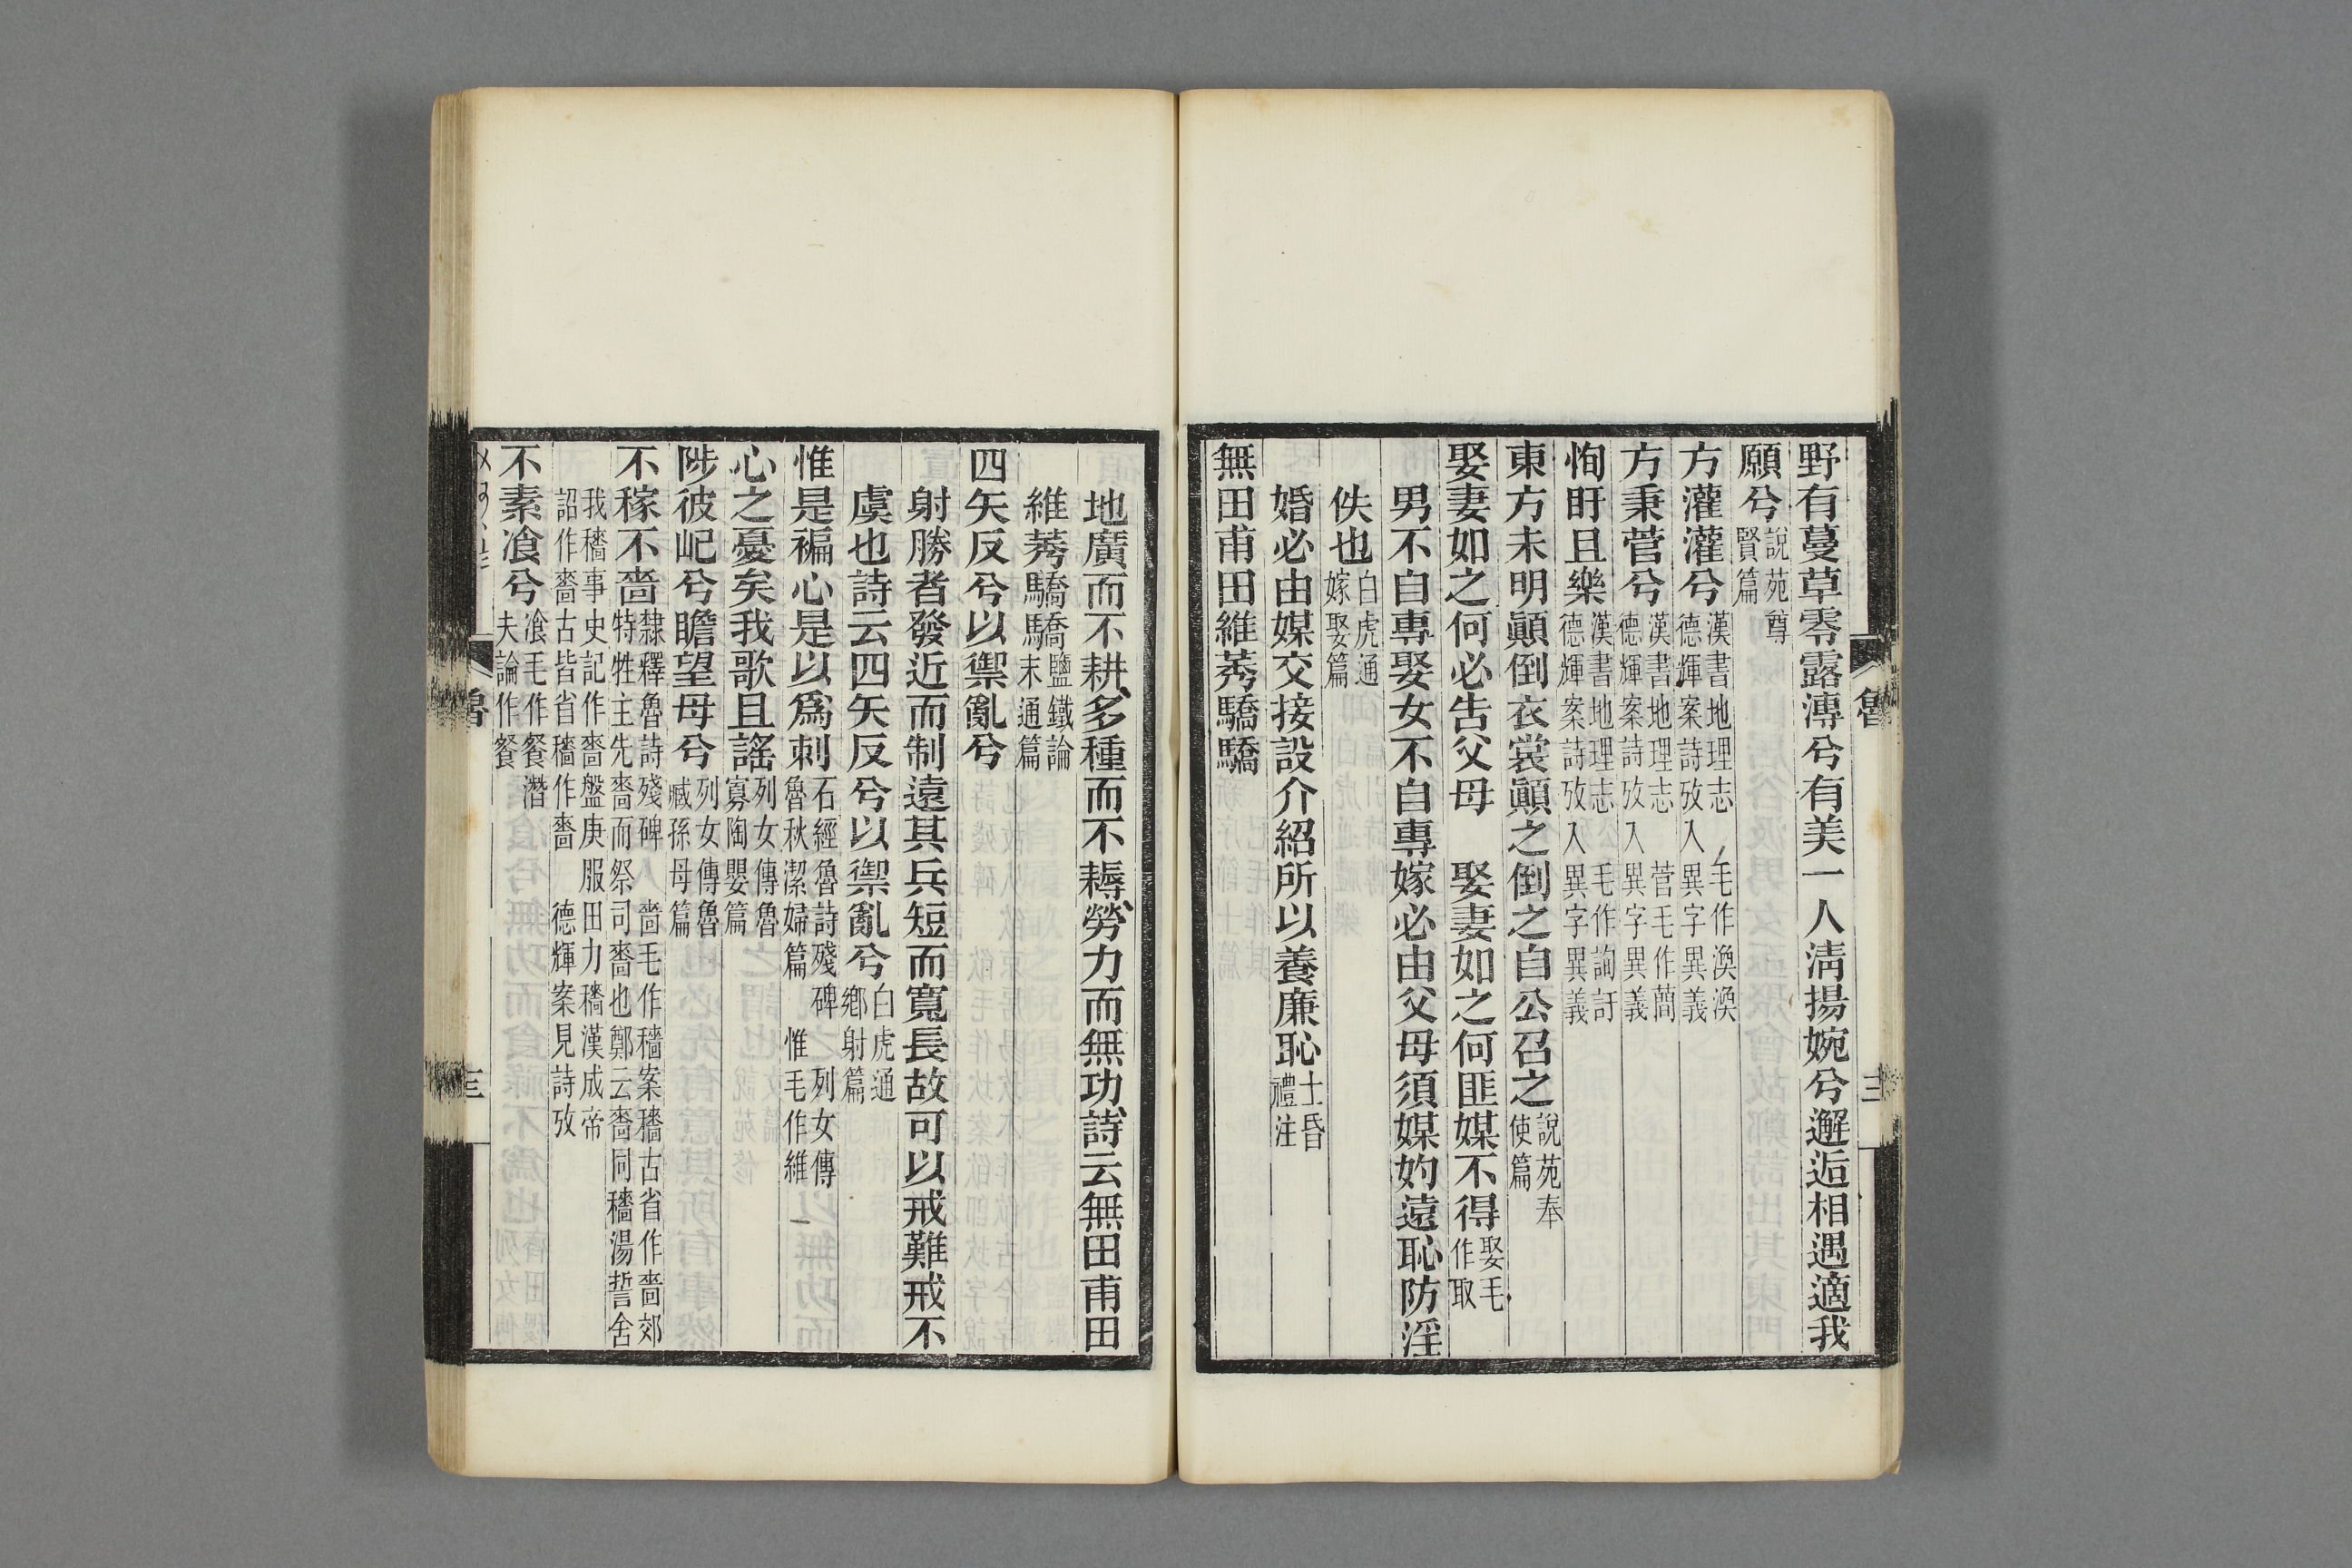 野有蔓草零露漙兮有美一人淸揚婉兮邂逅相遇適我
願兮說苑尊賢篇
方灌灌兮漢書地理志　毛作渙渙德輝案詩攷入異字異義
方秉菅兮漢書地理志　菅毛作蕳德輝案詩攷入異字異義
恂盱且樂漢書地理志　毛作詢訏德輝案詩攷入異字異義
東方未明顚倒衣裳顚之倒之自公召之說苑奉使篇
娶妻如之何必告父母　娶妻如之何匪媒不得娶毛作取
男不自專娶女不自專嫁必由父母須媒妁遠恥防淫
佚也白虎通嫁娶篇
婚必由媒交接設介紹所以養廉恥士昏禮注
無田甫田維莠驕驕
魯
三
地廣而不耕多種而不耨勞力而無功詩云無田甫田
維莠驕驕鹽鐵論末通篇
四矢反兮以禦亂兮
射勝者發近而制遠其兵短而寬長故可以戒難戒不
虞也詩云四矢反兮以禦亂兮白虎通鄉射篇
惟是褊心是以爲刺石經魯詩殘碑　列女傳魯秋潔婦篇　惟毛作維
心之憂矣我歌且謠列女傳魯寡陶嬰篇
陟彼屺兮瞻望母兮列女傳魯臧孫母篇
不稼不嗇隸釋魯詩殘碑　嗇毛作穡案穡古省作嗇郊特牲主先嗇而祭司嗇也鄭云嗇同穡湯誓舍
我穡事史記作嗇盤庚服田力穡漢成帝詔作嗇古皆省穡作嗇　德輝案見詩攷
不素飡兮飡毛作餐潛夫論作餐
魯
三